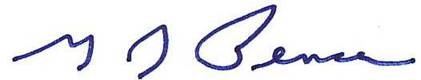 M J Pence